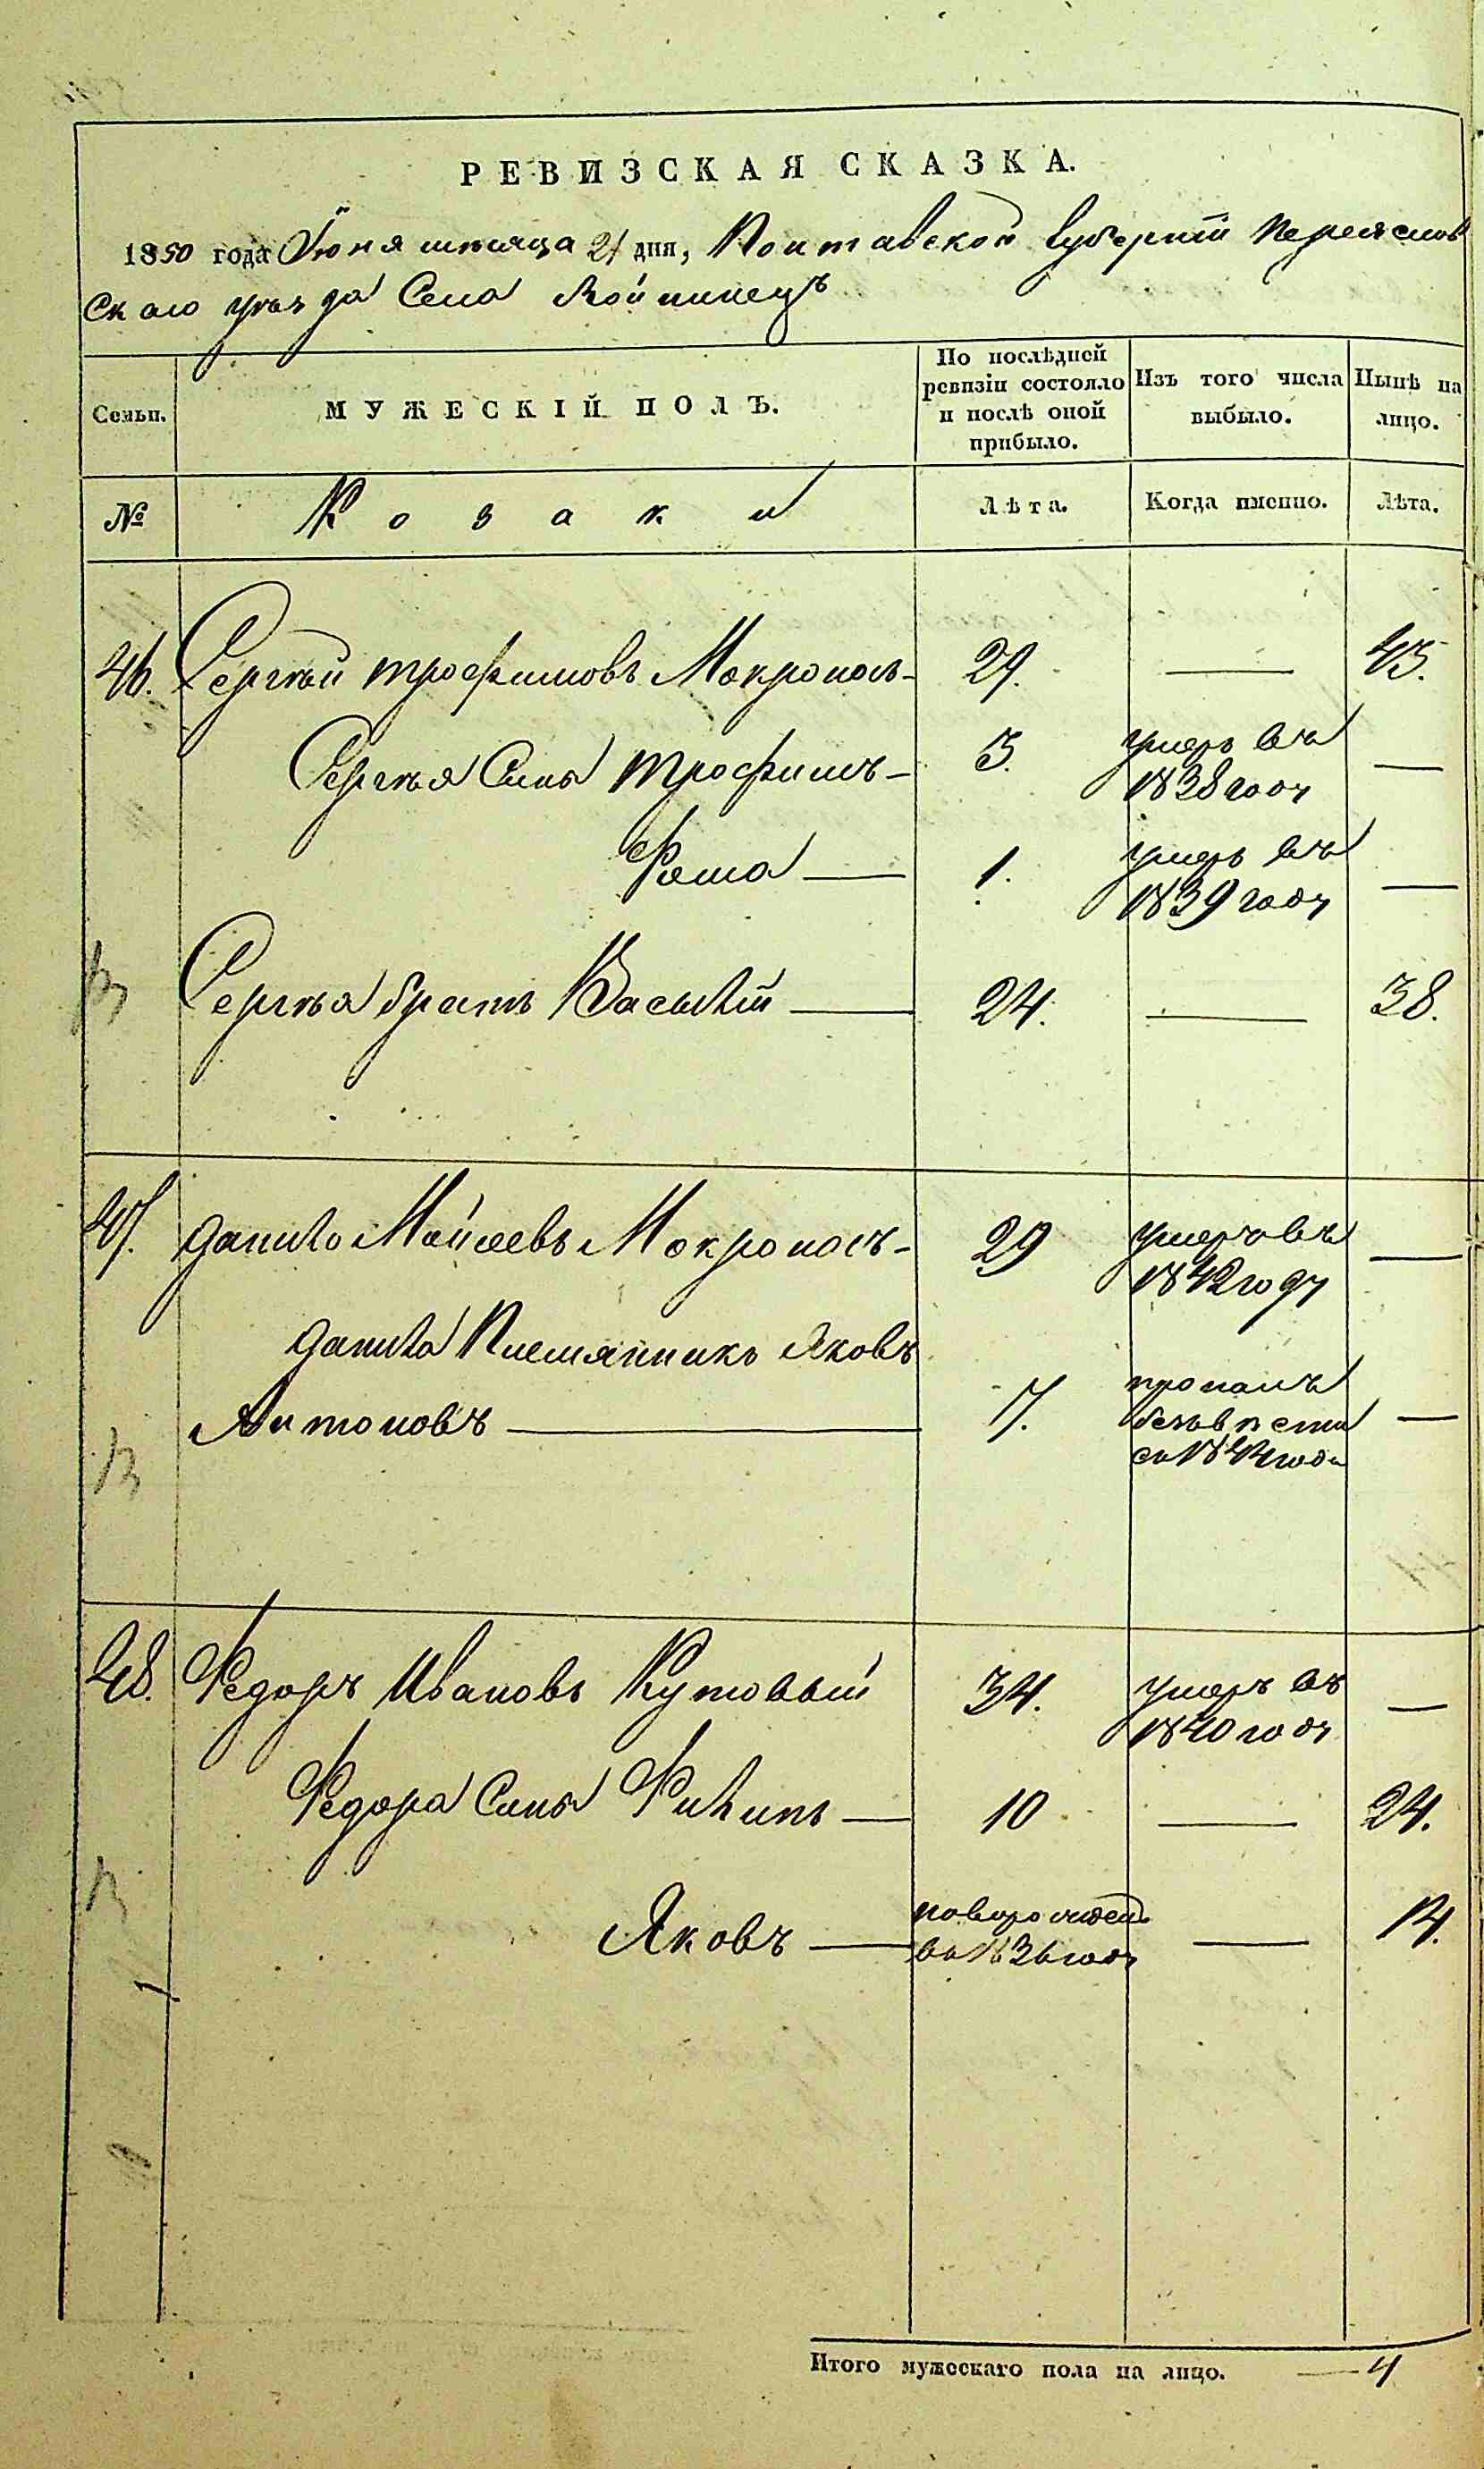 РЕВИЗСКАЯ СКАЗКА.
1850 года Іюня мѣсяца 21 дня, Полтавской Губерніи Переяслов
скаго уѣзда Села Войтинецъ
Семьи.
МУЖЕСКІЙ ПОЛЪ.
По послѣдней ревизіи состояло и послѣ оной прибыло.
Изъ того числа выбыло.
Нынѣ на лицо.
№
Козаки
Лѣта.
Когда именно.
Лѣта.
46. Сергѣй Трофимовъ Мокроносъ 29. — 43.
Сергѣя Сынъ Трофимъ 3. умеръ въ 1838 году —
Фома — 1. умеръ въ 1839 году —
Сергѣя братъ Василій — 24. — 38.
47. Данило Мойсеевъ Мокроносъ 29 умеръ въ 1842 году —
Данила Племянникъ Яковъ
Антоновъ — 17. пропалъ безъ вѣсти съ 1844 года —
48. Федоръ Ивановъ Кутовый 34. умеръ въ 1840 году —
Федора Сынъ Филипъ — 10 — 24.
Яковъ — новорожден въ 1836 году — 14.
Итого мужескаго пола на лицо. — 4